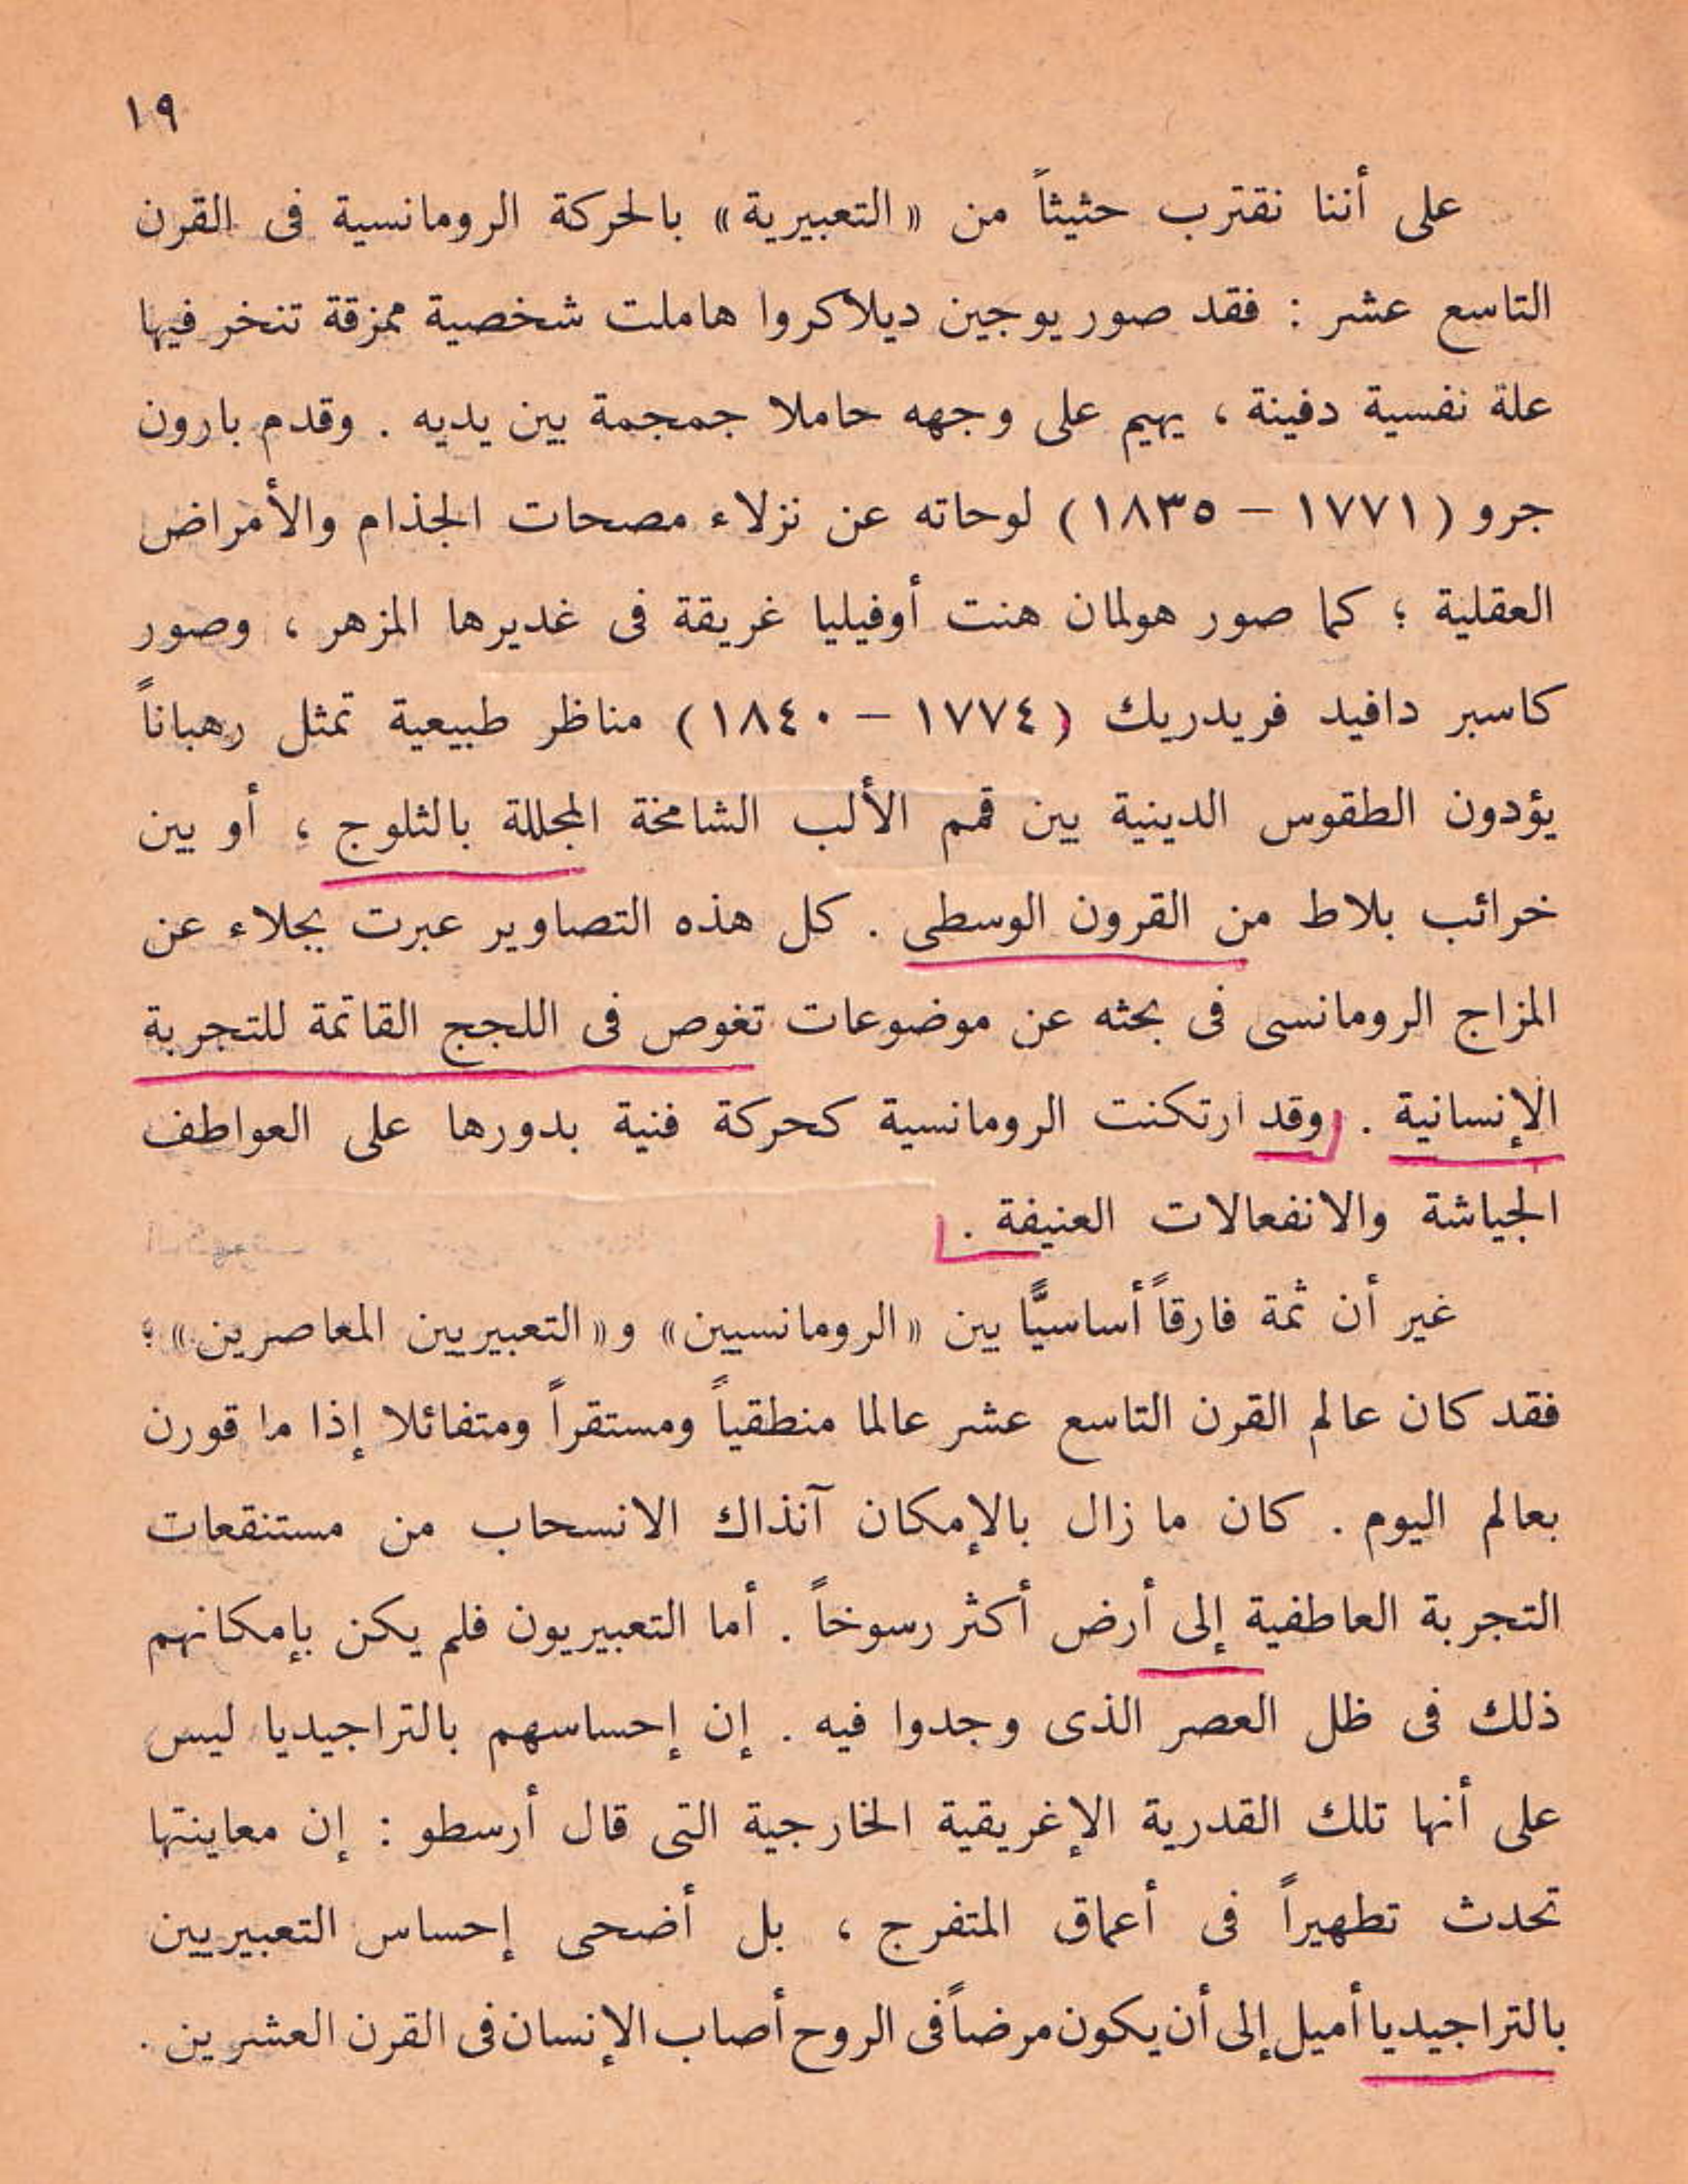 ١٩
على أننا نقترب حثيثاً من « التعبيرية » بالحركة الرومانسية فى القرن
التاسع عشر : فقد صور يوجين ديلاكروا هاملت شخصية ممزقة تنخر فيها
علة نفسية دفينة ، يهيم على وجهه حاملا جمجمة بين يديه . وقدم بارون
جرو ( ١٧٧١ – ١٨٣٥ ) لوحاته عن نزلاء مصحات الجذام والأمراض
العقلية ؛ كما صور هولمان هنت أوفيليا غريقة فى غديرها المزهر ، وصور
كاسبر دافيد فريدريك ( ١٧٧٤ – ١٨٤٠ ) مناظر طبيعية تمثل رهباناً
يؤدون الطقوس الدينية بين قمم الألب الشامخة المجللة بالثلوج ، أو بين
خرائب بلاط من القرون الوسطى . كل هذه التصاوير عبرت بجلاء عن
المزاج الرومانسى فى بحثه عن موضوعات تغوص فى اللجج القاتمة للتجربة
الإنسانية . وقد ارتكنت الرومانسية كحركة فنية بدورها على العواطف
الجياشة والانفعالات العنيفة .
غير أن ثمة فارقاً أساسيًّا بين « الرومانسيين » و « التعبيريين المعاصرين » ؛
فقد كان عالم القرن التاسع عشر عالما منطقياً ومستقراً ومتفائلا إذا ما قورن
بعالم اليوم . كان ما زال بالإمكان آنذاك الانسحاب من مستنقعات
التجربة العاطفية إلى أرض أكثر رسوخاً . أما التعبيريون فلم يكن بإمكانهم
ذلك فى ظل العصر الذى وجدوا فيه . إن إحساسهم بالتراجيديا ليس
على أنها تلك القدرية الإغريقية الخارجية التى قال أرسطو : إن معاينتها
تحدث تطهيراً فى أعماق المتفرج ، بل أضحى إحساس التعبيريين
بالتراجيديا أميل إلى أن يكون مرضاً فى الروح أصاب الإنسان فى القرن العشرين .